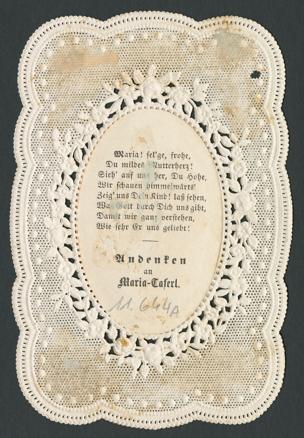 Maria! sel'ge, frohe,
Du mildes Mutterherz!
Sieh' auf uns her, Du Hohe,
Wir schauen himmelwärts!
Zeig' uns Dein Kind! laß sehen,
Was Gott durch Dich uns gibt,
Damit wir ganz verstehen,
Wie sehr Er uns geliebt!
Andenken
an
Maria-Taferl.
11.644A